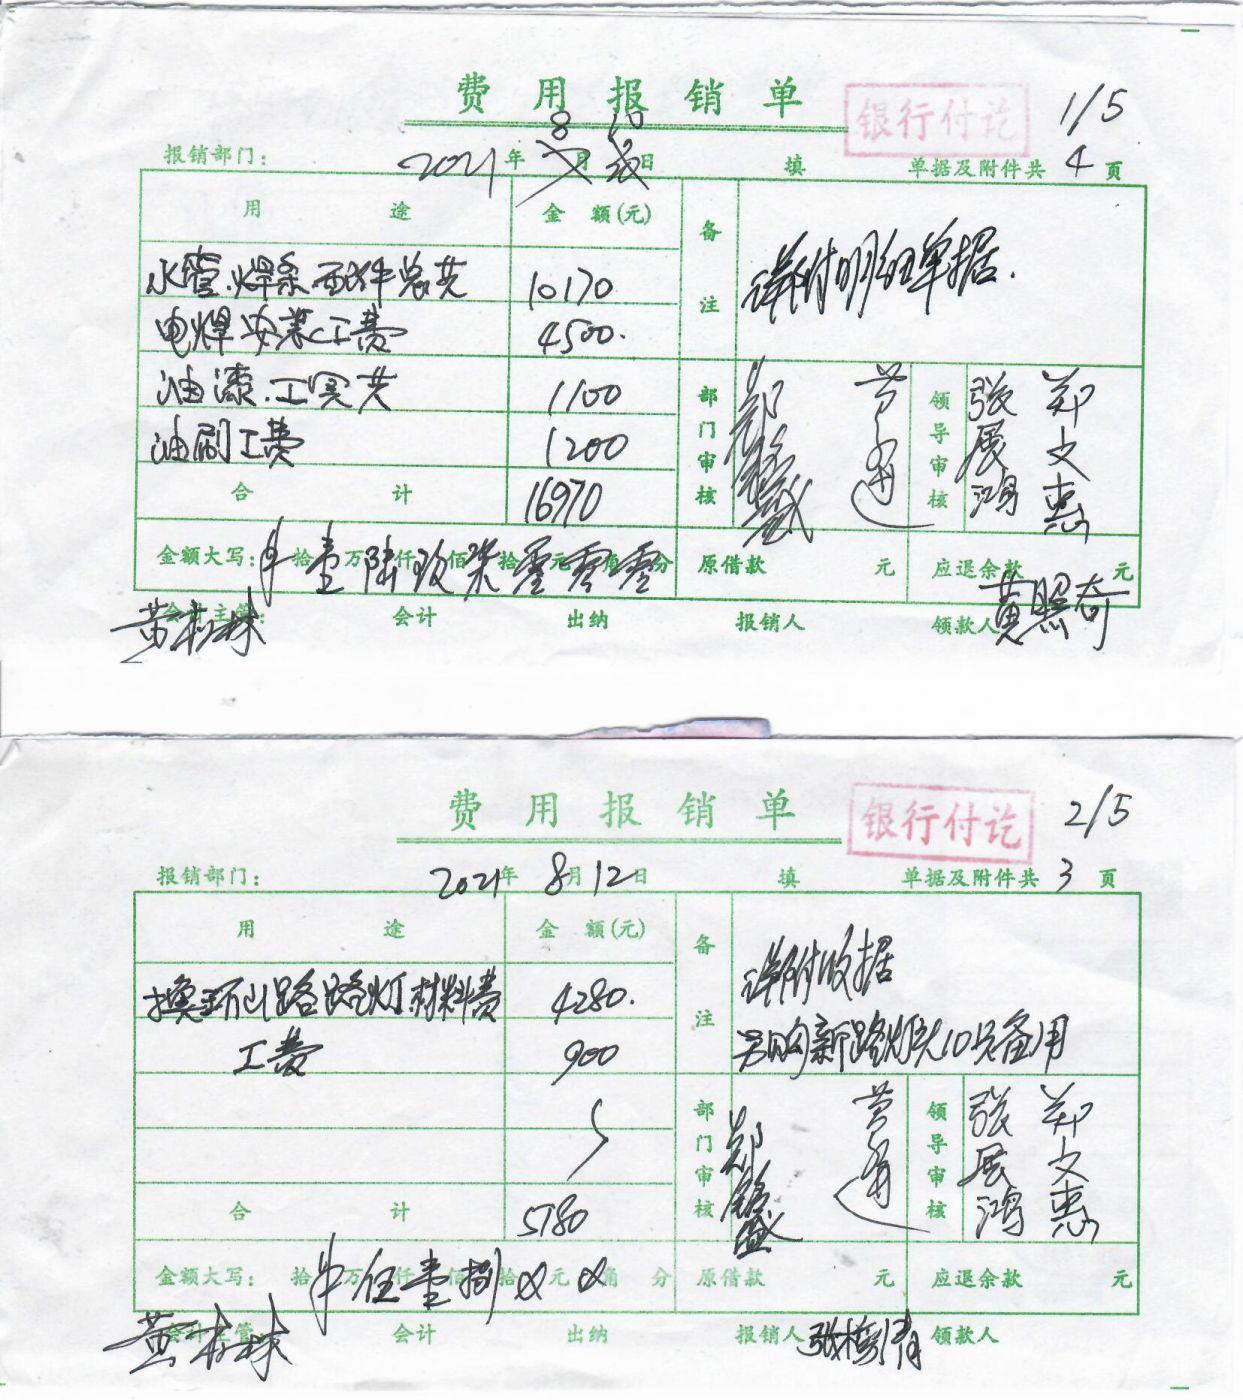 费用报销单
银行付讫
1/5
8 10
报销部门： 2021年 月 日 填 单据及附件共 4 页
用途 金额(元) 备注
详附明细单据.
水管.焊条.配件总共 10170
电焊安装工费 4500.
油漆.工具共 1100
油刷工费 1200
合计 16970
部门审核 郑 领导审核 张展鸿 郑文惠
金额大写： 拾壹万陆仟玖佰柒拾零元零角零分 原借款 元 应退余款 元
会计主管： 会计 出纳 报销人 领款人 黄照奇
费用报销单
银行付讫
2/5
报销部门： 2021年 8月12日 填 单据及附件共 3 页
用途 金额(元) 备注
详附收据
另购新路灯头10只备用
换环山路路灯材料费 4280.
工费 900
合计 5180
部门审核 郑 领导审核 张展鸿 郑文惠
金额大写： 拾 万伍仟壹佰捌拾0元0角 分 原借款 元 应退余款 元
会计主管： 会计 出纳 报销人 领款人